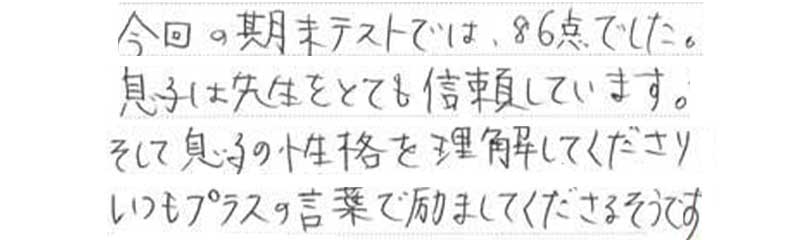 今回の期末テストでは、86点でした。
息子は先生をとても信頼しています。
そして息子の性格を理解してくださり
いつもプラスの言葉で励ましてくださるそうです